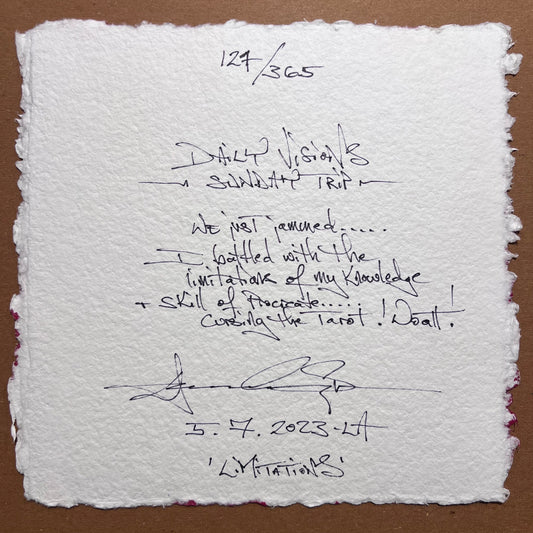 127/365
DAILY VISIONS
SUNDAY TRIP
WE just jammed.....
I battled with the
limitations of my knowledge
+ skill of Procreate.....
cursing the Tarot! !
5.7.2023-LA
'LIMITATIONS'